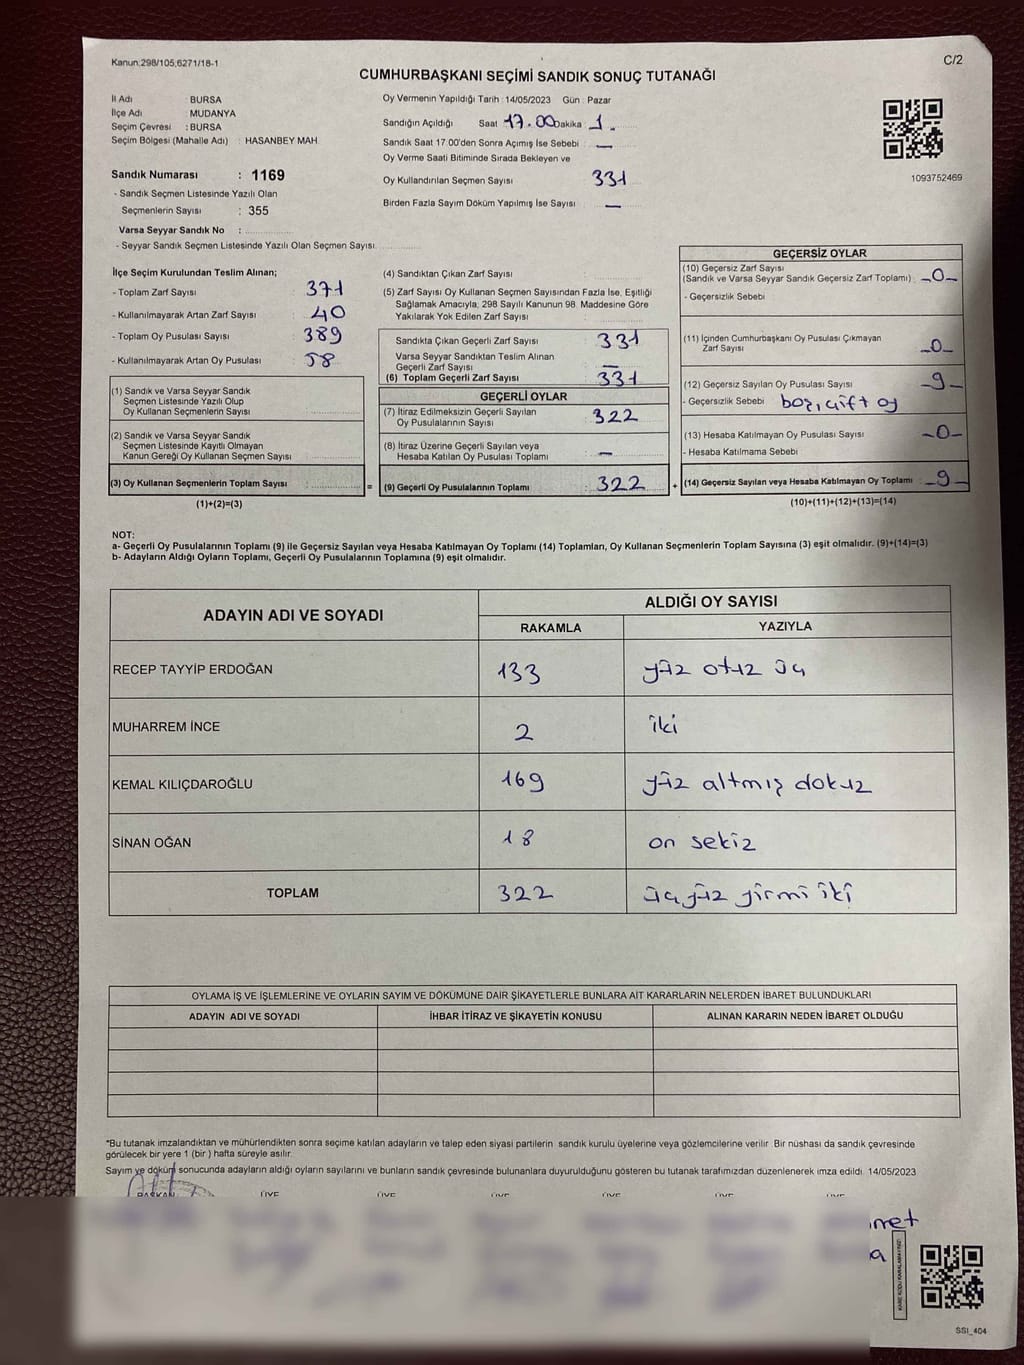 Kanun:298/105,6271/18-1
C/2
CUMHURBAŞKANI SEÇİMİ SANDIK SONUÇ TUTANAĞI
İl Adı BURSA
İlçe Adı : MUDANYA
Seçim Çevresi : BURSA
Seçim Bölgesi (Mahalle Adı) : HASANBEY MAH.
Sandık Numarası : 1169
- Sandık Seçmen Listesinde Yazılı Olan
Seçmenlerin Sayısı : 355
Varsa Seyyar Sandık No :
- Seyyar Sandık Seçmen Listesinde Yazılı Olan Seçmen Sayısı
Oy Vermenin Yapıldığı Tarih : 14/05/2023 Gün : Pazar
Sandığın Açıldığı Saat 17.00 Dakika : 1.
Sandık Saat 17.00'den Sonra Açımış İse Sebebi : —
Oy Verme Saati Bitiminde Sırada Bekleyen ve
Oy Kullandırılan Seçmen Sayısı 331
Birden Fazla Sayım Döküm Yapılmış İse Sayısı : —
1093752469
İlçe Seçim Kurulundan Teslim Alınan;
- Toplam Zarf Sayısı : 371
- Kullanılmayarak Artan Zarf Sayısı : 40
- Toplam Oy Pusulası Sayısı : 389
- Kullanılmayarak Artan Oy Pusulası : 58
(1) Sandık ve Varsa Seyyar Sandık
Seçmen Listesinde Yazılı Olup
Oy Kullanan Seçmenlerin Sayısı :
(2) Sandık ve Varsa Seyyar Sandık
Seçmen Listesinde Kayıtlı Olmayan
Kanun Gereği Oy Kullanan Seçmen Sayısı :
(3) Oy Kullanan Seçmenlerin Toplam Sayısı :
(1)+(2)=(3)
(4) Sandıktan Çıkan Zarf Sayısı :
(5) Zarf Sayısı Oy Kullanan Seçmen Sayısından Fazla İse, Eşitliği
Sağlamak Amacıyla, 298 Sayılı Kanunun 98. Maddesine Göre
Yakılarak Yok Edilen Zarf Sayısı :
Sandıkta Çıkan Geçerli Zarf Sayısı : 331
Varsa Seyyar Sandıktan Teslim Alınan
Geçerli Zarf Sayısı : —
(6) Toplam Geçerli Zarf Sayısı : 331
GEÇERLİ OYLAR
(7) İtiraz Edilmeksizin Geçerli Sayılan
Oy Pusulalarının Sayısı : 322
(8) İtiraz Üzerine Geçerli Sayılan veya
Hesaba Katılan Oy Pusulası Toplamı : —
= (9) Geçerli Oy Pusulalarının Toplamı : 322
GEÇERSİZ OYLAR
(10) Geçersiz Zarf Sayısı
(Sandık ve Varsa Seyyar Sandık Geçersiz Zarf Toplamı) : -0-
- Geçersizlik Sebebi
(11) İçinden Cumhurbaşkanı Oy Pusulası Çıkmayan
Zarf Sayısı : -0-
(12) Geçersiz Sayılan Oy Pusulası Sayısı : -9-
- Geçersizlik Sebebi boş, çift oy
(13) Hesaba Katılmayan Oy Pusulası Sayısı : -0-
- Hesaba Katılmama Sebebi
+ (14) Geçersiz Sayılan veya Hesaba Katılmayan Oy Toplamı : -9-
(10)+(11)+(12)+(13)=(14)
NOT:
a- Geçerli Oy Pusulalarının Toplamı (9) ile Geçersiz Sayılan veya Hesaba Katılmayan Oy Toplamı (14) Toplamları, Oy Kullanan Seçmenlerin Toplam Sayısına (3) eşit olmalıdır. (9)+(14)=(3)
b- Adayların Aldığı Oyların Toplamı, Geçerli Oy Pusulalarının Toplamına (9) eşit olmalıdır.
ADAYIN ADI VE SOYADI ALDIĞI OY SAYISI
RAKAMLA YAZIYLA
RECEP TAYYİP ERDOĞAN 133 yüz otuz üç
MUHARREM İNCE 2 iki
KEMAL KILIÇDAROĞLU 169 yüz altmış dokuz
SİNAN OĞAN 18 on sekiz
TOPLAM 322 üç yüz yirmi iki
OYLAMA İŞ VE İŞLEMLERİNE VE OYLARIN SAYIM VE DÖKÜMÜNE DAİR ŞİKAYETLERLE BUNLARA AİT KARARLARIN NELERDEN İBARET BULUNDUKLARI
ADAYIN ADI VE SOYADI İHBAR İTİRAZ VE ŞİKAYETİN KONUSU ALINAN KARARIN NEDEN İBARET OLDUĞU
*Bu tutanak imzalandıktan ve mühürlendikten sonra seçime katılan adayların ve talep eden siyasi partilerin sandık kurulu üyelerine veya gözlemcilerine verilir. Bir nüshası da sandık çevresinde
görülecek bir yere 1 (bir) hafta süreyle asılır.
Sayım ve döküm sonucunda adayların aldığı oyların sayılarını ve bunların sandık çevresinde bulunanlara duyurulduğunu gösteren bu tutanak tarafımızdan düzenlenerek imza edildi. 14/05/2023
BAŞKAN ÜYE ÜYE ÜYE ÜYE ÜYE ÜYE
KARE KODU KARALAMAYINIZ!
SSI_404